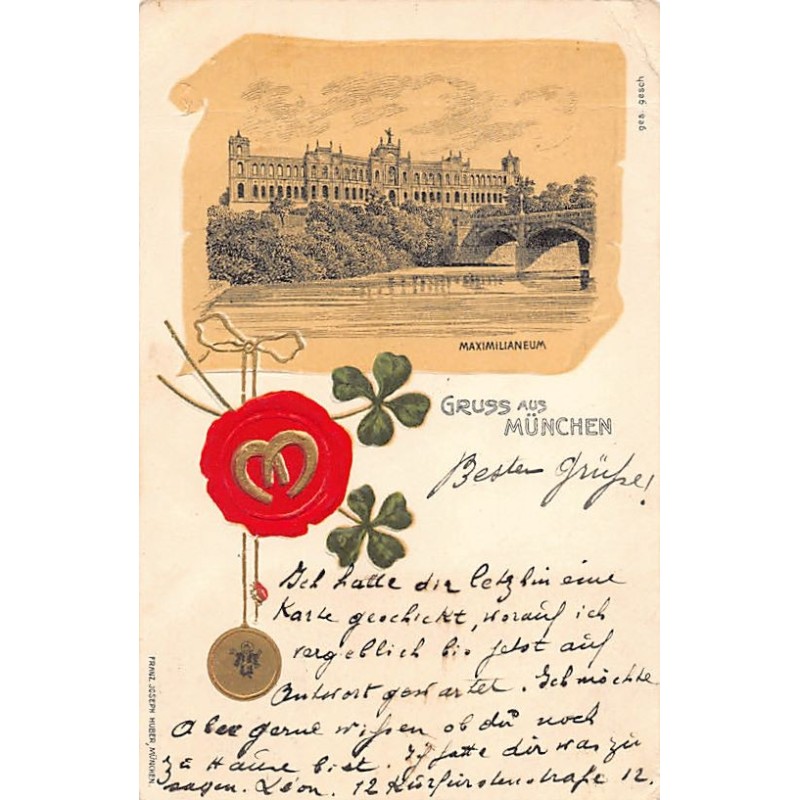 ges. gesch
MAXIMILIANEUM
GRUSS AUS
MÜNCHEN
Besten Grüße!
Ich hatte dir letzhin eine
Karte geschickt, worauf ich
vergeblich bis jetzt auf
Antwort gewartet. Ich möchte
Aber gerne wißen ob du noch
zu Hause bist. Ich hatte dir was zu
sagen. Léon. 12 Kurfürstenstraße 12.
FRANZ JOSEPH HUBER, MÜNCHEN.